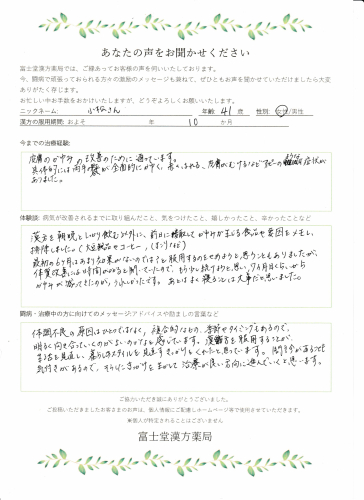 あなたの声をお聞かせください
富士堂漢方薬局では、ご縁あってお客様の声を伺いいたしております。
今、闘病で頑張っておられる方々の激励のメッセージも兼ねて、ぜひともお声を聞かせていただけましたら大変
ありがたく存じます。
お忙しい中お手数をおかけいたしますが、どうぞよろしくお願いします。
ニックネーム: 小松さん 年齢: 41 歳 性別: 女性/男性
漢方の服用期間: およそ 年 10 か月
今までの治療経験:
皮膚のかゆみの改善のために通っています。
ありました。
体験談: 病気が改善されるまでに取り組んだこと、気をつけたこと、嬉しかったこと、辛かったことなど
漢方を朝晩としっかり飲む以外に、前日に摂取してかゆみがまる食品や要因をメモし、
排除しました。(大豆製品やコーヒー、
最初の6ヶ月はあまり効果がないのではと服用するのをやめようと思うこともありましたが、
体質改善には時間がかかると聞いていたので、もう少し続けようと思い、7ヵ月目くらいから
かゆみが減ってきたのが、うれしかったです。あとはよく寝ることは大事だと思いました。
闘病・治療中の方に向けてのメッセージ:アドバイスや励ましの言葉など
体調不良の原因はひとつではなく、複合的なもの、季節やタイミングもあるので、
明るく向き合っていくのがよいのかなと感じています。漢方を服用することが、
生活を見直し、暮らしやスタイルを見直すきっかけをくれたと思っています。
気付きがあるので、そういったきっかけをまじえて治療が良い方向に進んでいくと思います。
ご協力いただき誠にありがとうございました。
ご投稿いただきましたお客さまのお声は、個人情報にご配慮しホームページ等で使用させていただきます。
※個人が特定されることはございません
富士堂漢方薬局